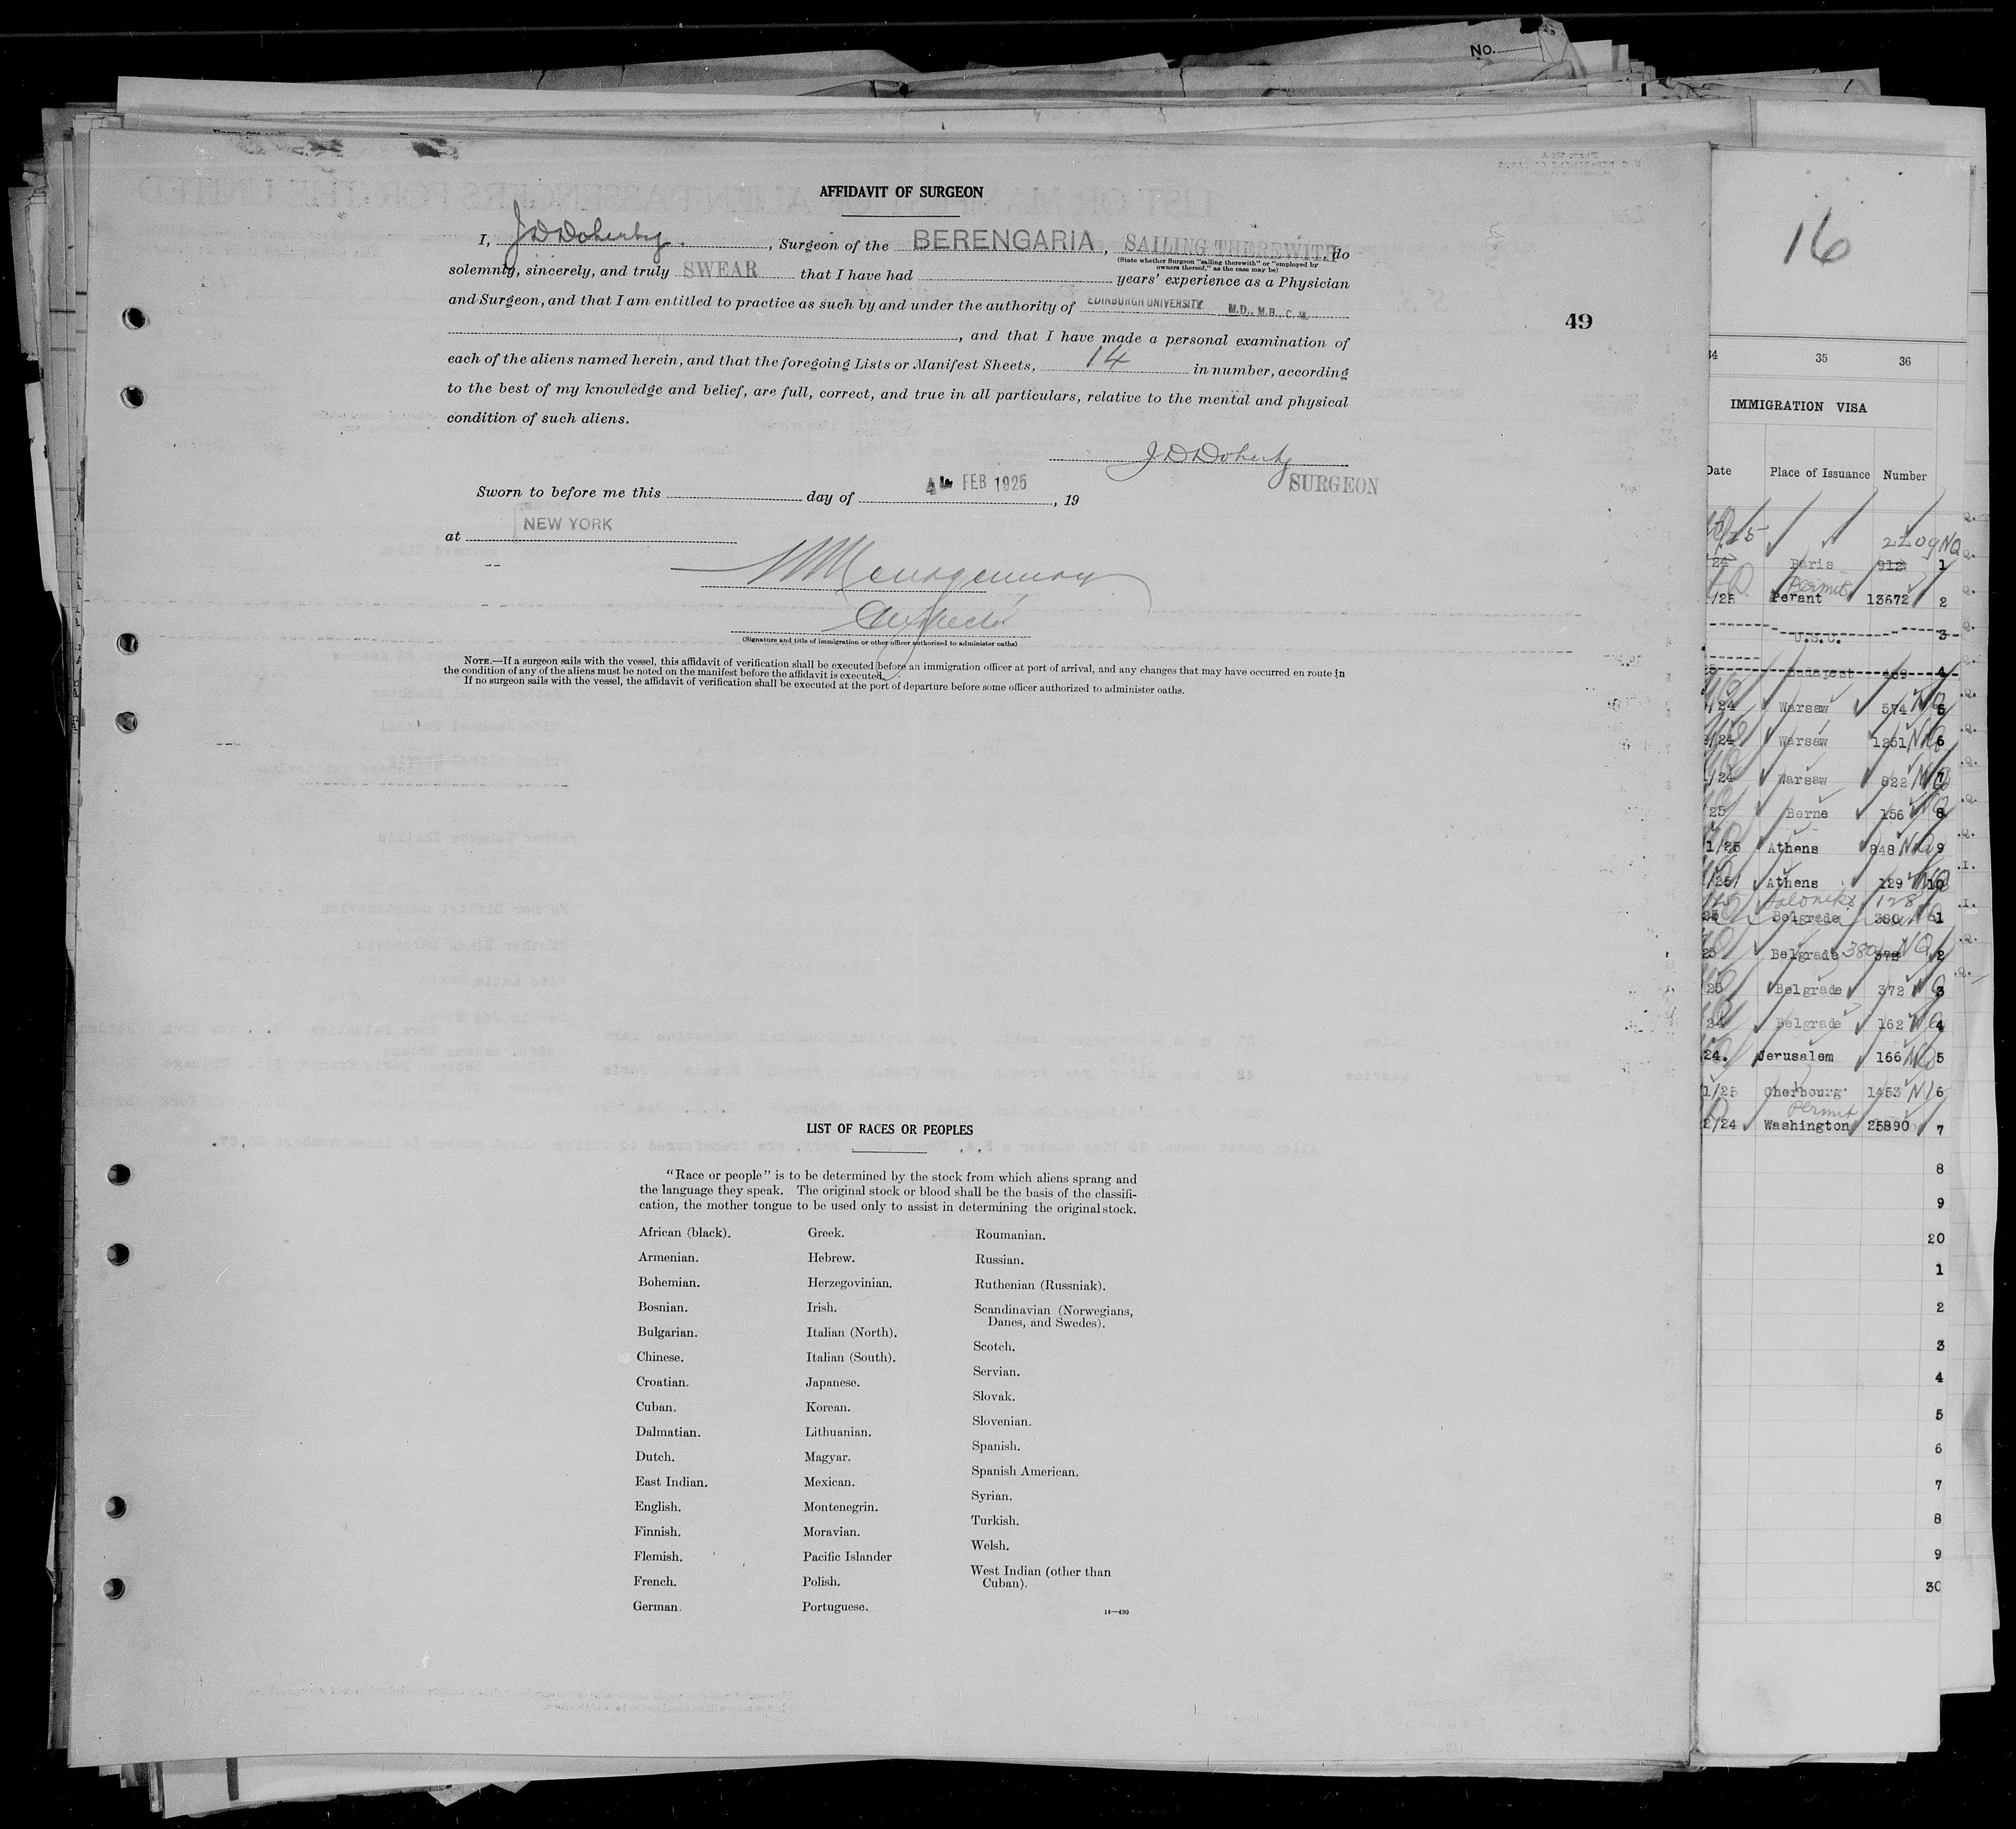 No.
AFFIDAVIT OF SURGEON
I, J D Doherty., Surgeon of the BERENGARIA, SAILING THEREWITH, do
(State whether Surgeon "sailing therewith" or "employed by
owners thereof," as the case may be)
solemnly, sincerely, and truly SWEAR that I have had years' experience as a Physician
and Surgeon, and that I am entitled to practice as such by and under the authority of EDINBURGH UNIVERSITY M.D., M.B., C.M.
, and that I have made a personal examination of
each of the aliens named herein, and that the foregoing Lists or Manifest Sheets, 14 in number, according
to the best of my knowledge and belief, are full, correct, and true in all particulars, relative to the mental and physical
condition of such aliens.
49
J D Doherty
SURGEON
Sworn to before me this day of FEB 1925, 19
at NEW YORK
(Signature and title of immigration or other officer authorized to administer oaths)
NOTE.—If a surgeon sails with the vessel, this affidavit of verification shall be executed before an immigration officer at port of arrival, and any changes that may have occurred en route in
the condition of any of the aliens must be noted on the manifest before the affidavit is executed.
If no surgeon sails with the vessel, the affidavit of verification shall be executed at the port of departure before some officer authorized to administer oaths.
LIST OF RACES OR PEOPLES
"Race or people" is to be determined by the stock from which aliens sprang and
the language they speak. The original stock or blood shall be the basis of the classifi-
cation, the mother tongue to be used only to assist in determining the original stock.
African (black).
Armenian.
Bohemian.
Bosnian.
Bulgarian.
Chinese.
Croatian.
Cuban.
Dalmatian.
Dutch.
East Indian.
English.
Finnish.
Flemish.
French.
German.
Greek.
Hebrew.
Herzegovinian.
Irish.
Italian (North).
Italian (South).
Japanese.
Korean.
Lithuanian.
Magyar.
Mexican.
Montenegrin.
Moravian.
Pacific Islander
Polish.
Portuguese.
Roumanian.
Russian.
Ruthenian (Russniak).
Scandinavian (Norwegians,
Danes, and Swedes).
Scotch.
Servian.
Slovak.
Slovenian.
Spanish.
Spanish American.
Syrian.
Turkish.
Welsh.
West Indian (other than
Cuban).
14—430
16
34 35 36
IMMIGRATION VISA
Date Place of Issuance Number
2209 NQ
24 Paris 912 1
Permit
/25 Perant 13672 2
U.S.C. 3
25 Budapest 469 4
/24 Warsaw 574 NQ 5
/24 Warsaw 1251 NQ 6
/24 Warsaw 822 NQ 7
25 Berne 156 NQ 8
1/25 Athens 848 NQ 9
/25 Athens 129 NQ 10
Saloniki 128
25 Belgrade 380 1
25 Belgrade 380 372 NQ 2
25 Belgrade 372 3
24 Belgrade 162 NQ 4
24. Jerusalem 166 NQ 5
1/25 Cherbourg 1453 6
Permit
2/24 Washington 25890 7
8
9
20
1
2
3
4
5
6
7
8
9
30